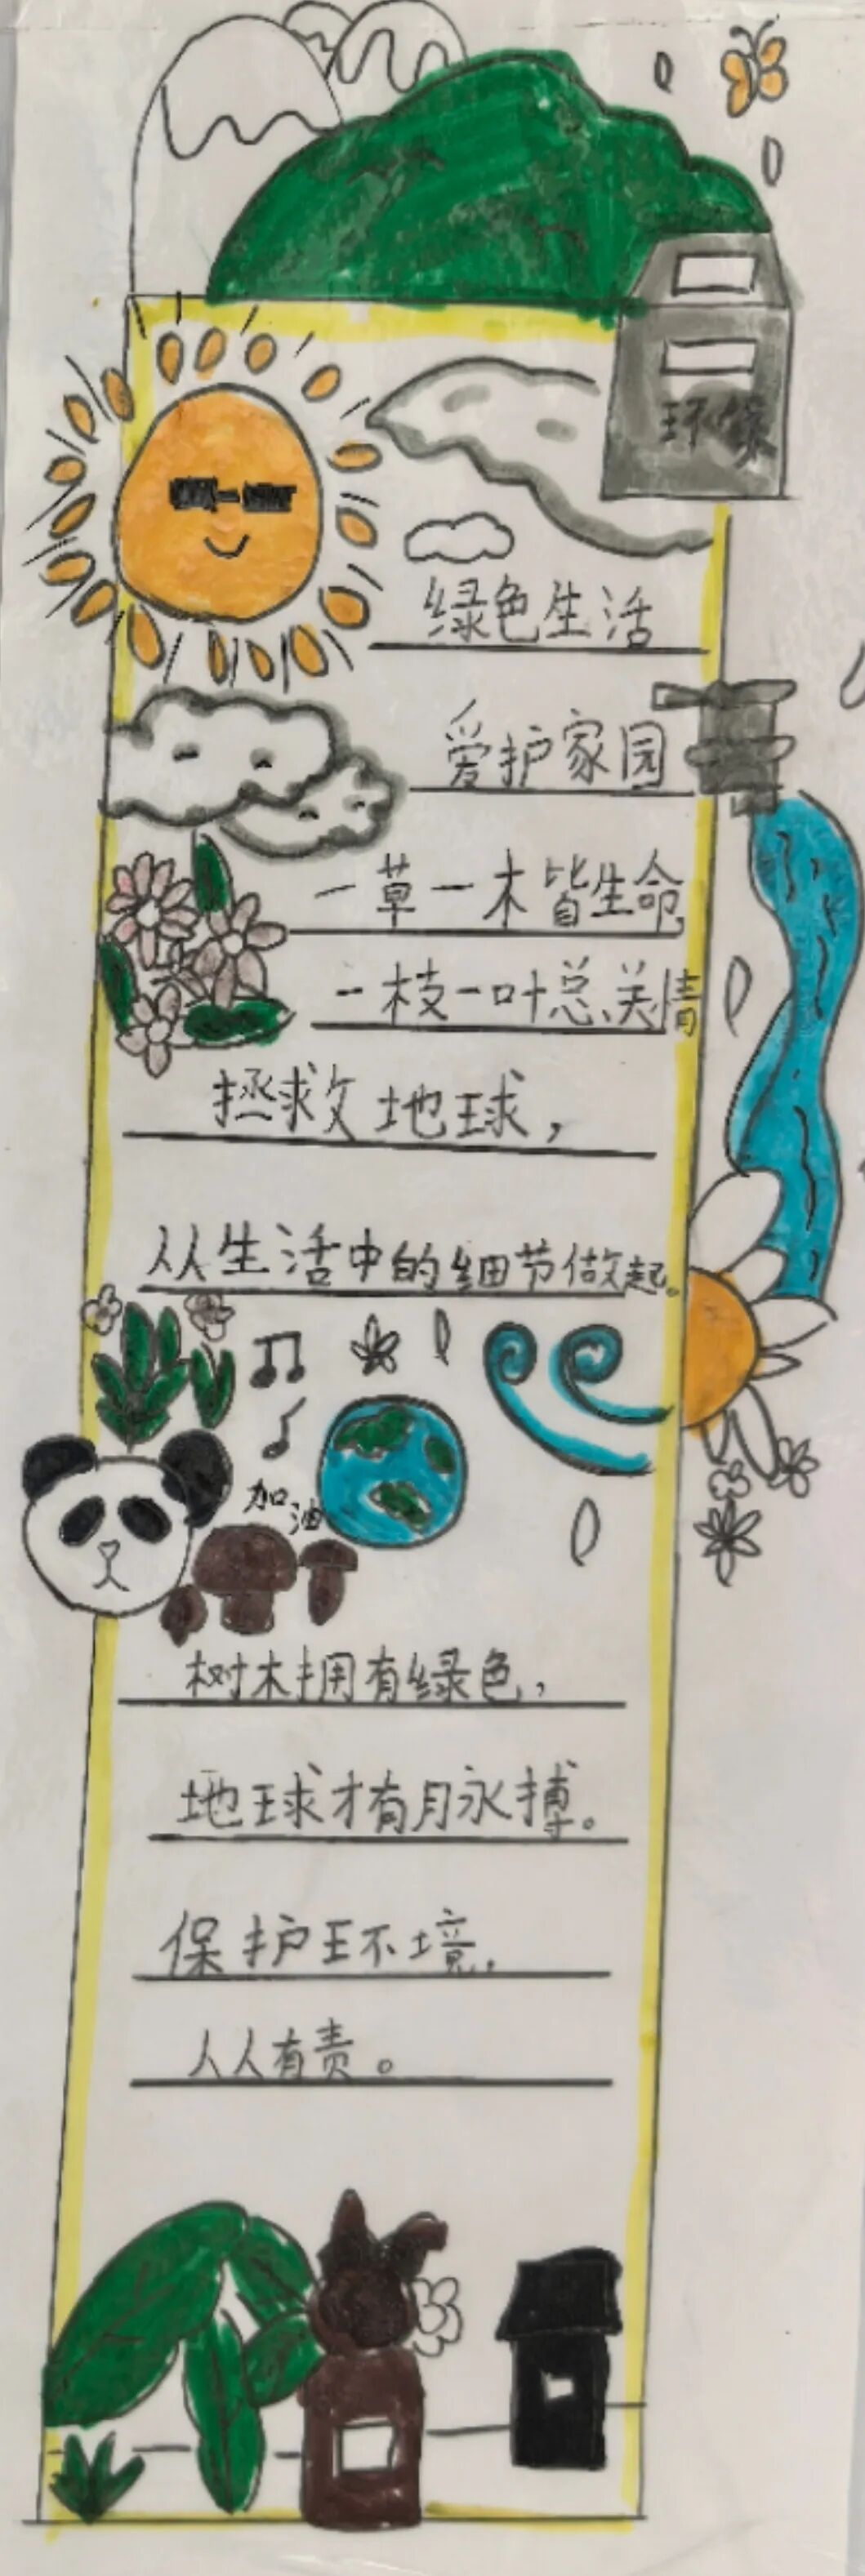 环保
绿色生活
爱护家园
一草一木皆生命
一枝一叶总关情
拯救地球，
从生活中的细节做起。
加油
树木拥有绿色，
地球才有脉搏。
保护环境，
人人有责。